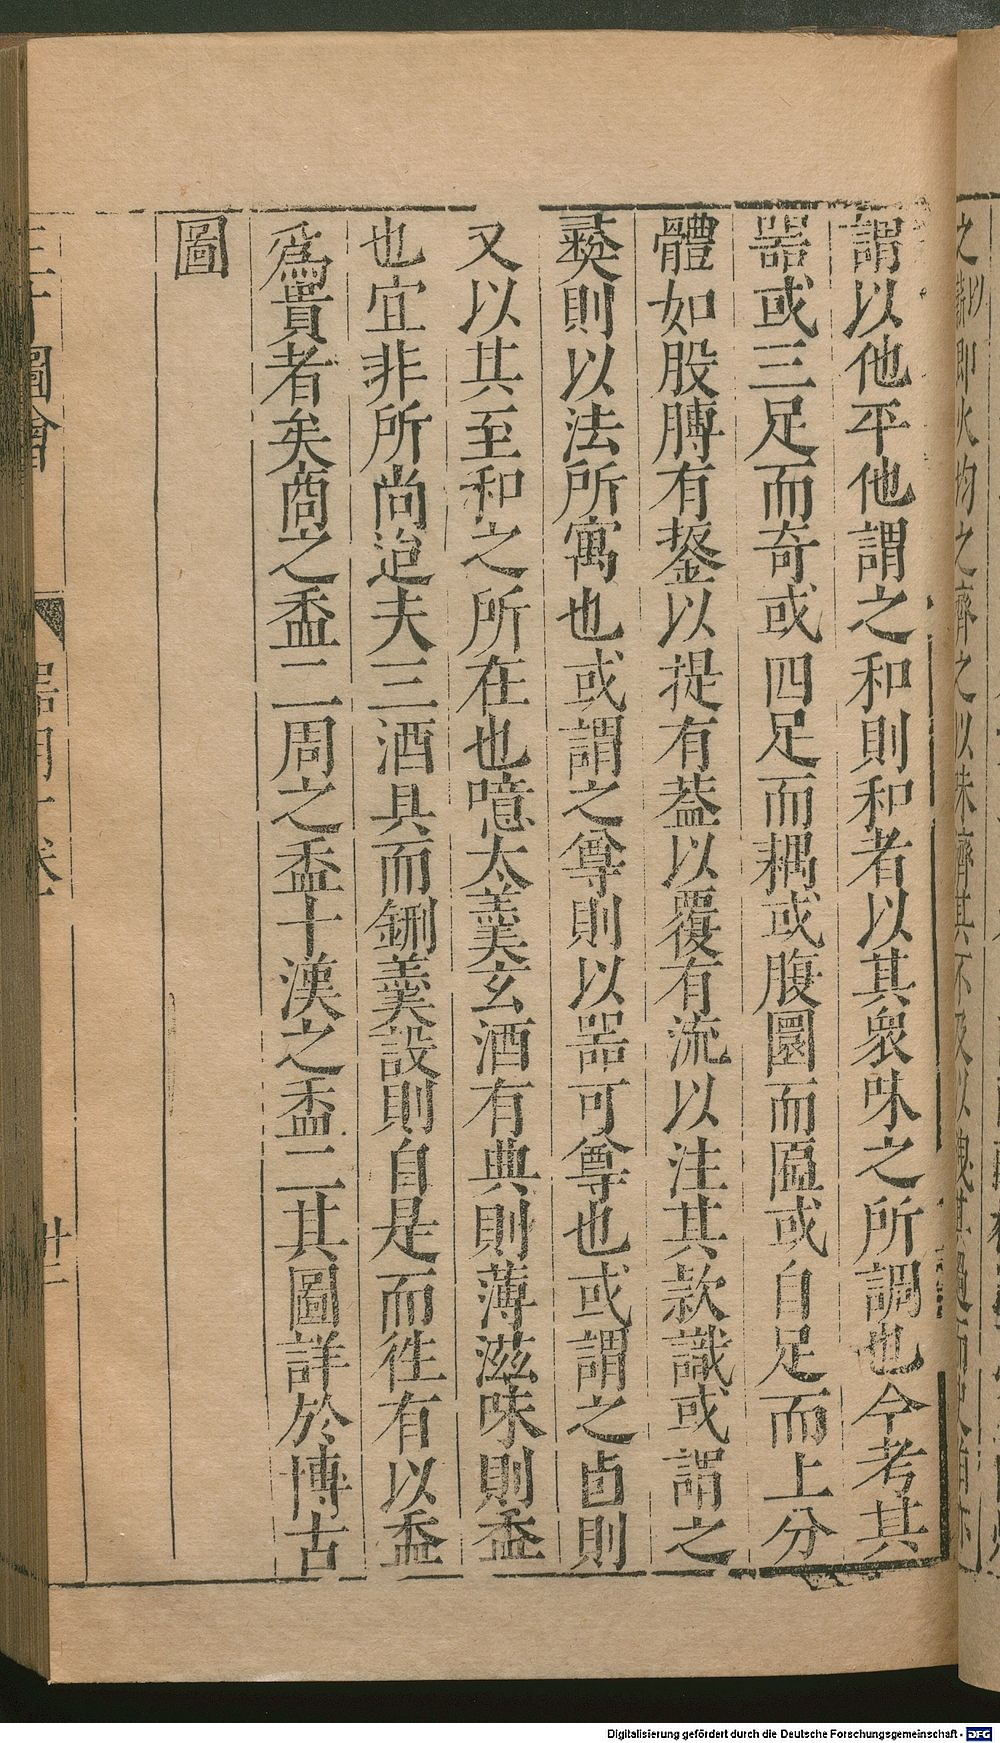 謂以他平他謂之和則和者以其衆味之所調也今考其
器或三足而奇或四足而耦或腹圜而匾或自足而上分
體如股膊有鋬以提有葢以覆有流以注其款識或謂之
彛則以法所寓也或謂之尊則以器可尊也或謂之卣則
又以其至和之所在也噫太羹玄酒有典則薄滋味則盉
也宜非所尚迨夫三酒具而鉶羹設則自是而徃有以盉
爲貴者矣商之盉二周之盉十漢之盉二其圖詳於博古
圖
三才圖會
器用一卷
廿二
Digitalisierung gefördert durch die Deutsche Forschungsgemeinschaft - DFG